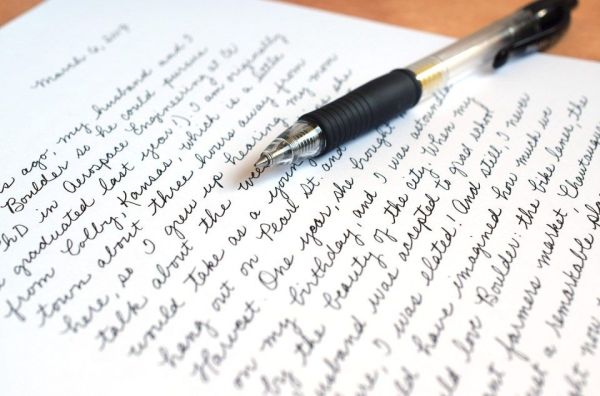 March 6, 2013
s ago, my husband and I
Boulder so he could pursue
PhD in Aerospace Engineering at
graduated last year!) I am originally
from Colby, Kansas, which is a little
town about three hours away from
here, so I grew up hearing my mom
talk about the
would take as a young
hang out on Pearl St. and
Harvest. One year, she brought
on my birthday, and I was
by the beauty of the city. When my
husband was accepted to grad school
I was elated! And still, I never
have imagined how much we
love Boulder: the bike lanes, the
farmers market, Chautauqua
just a remarkable
right now